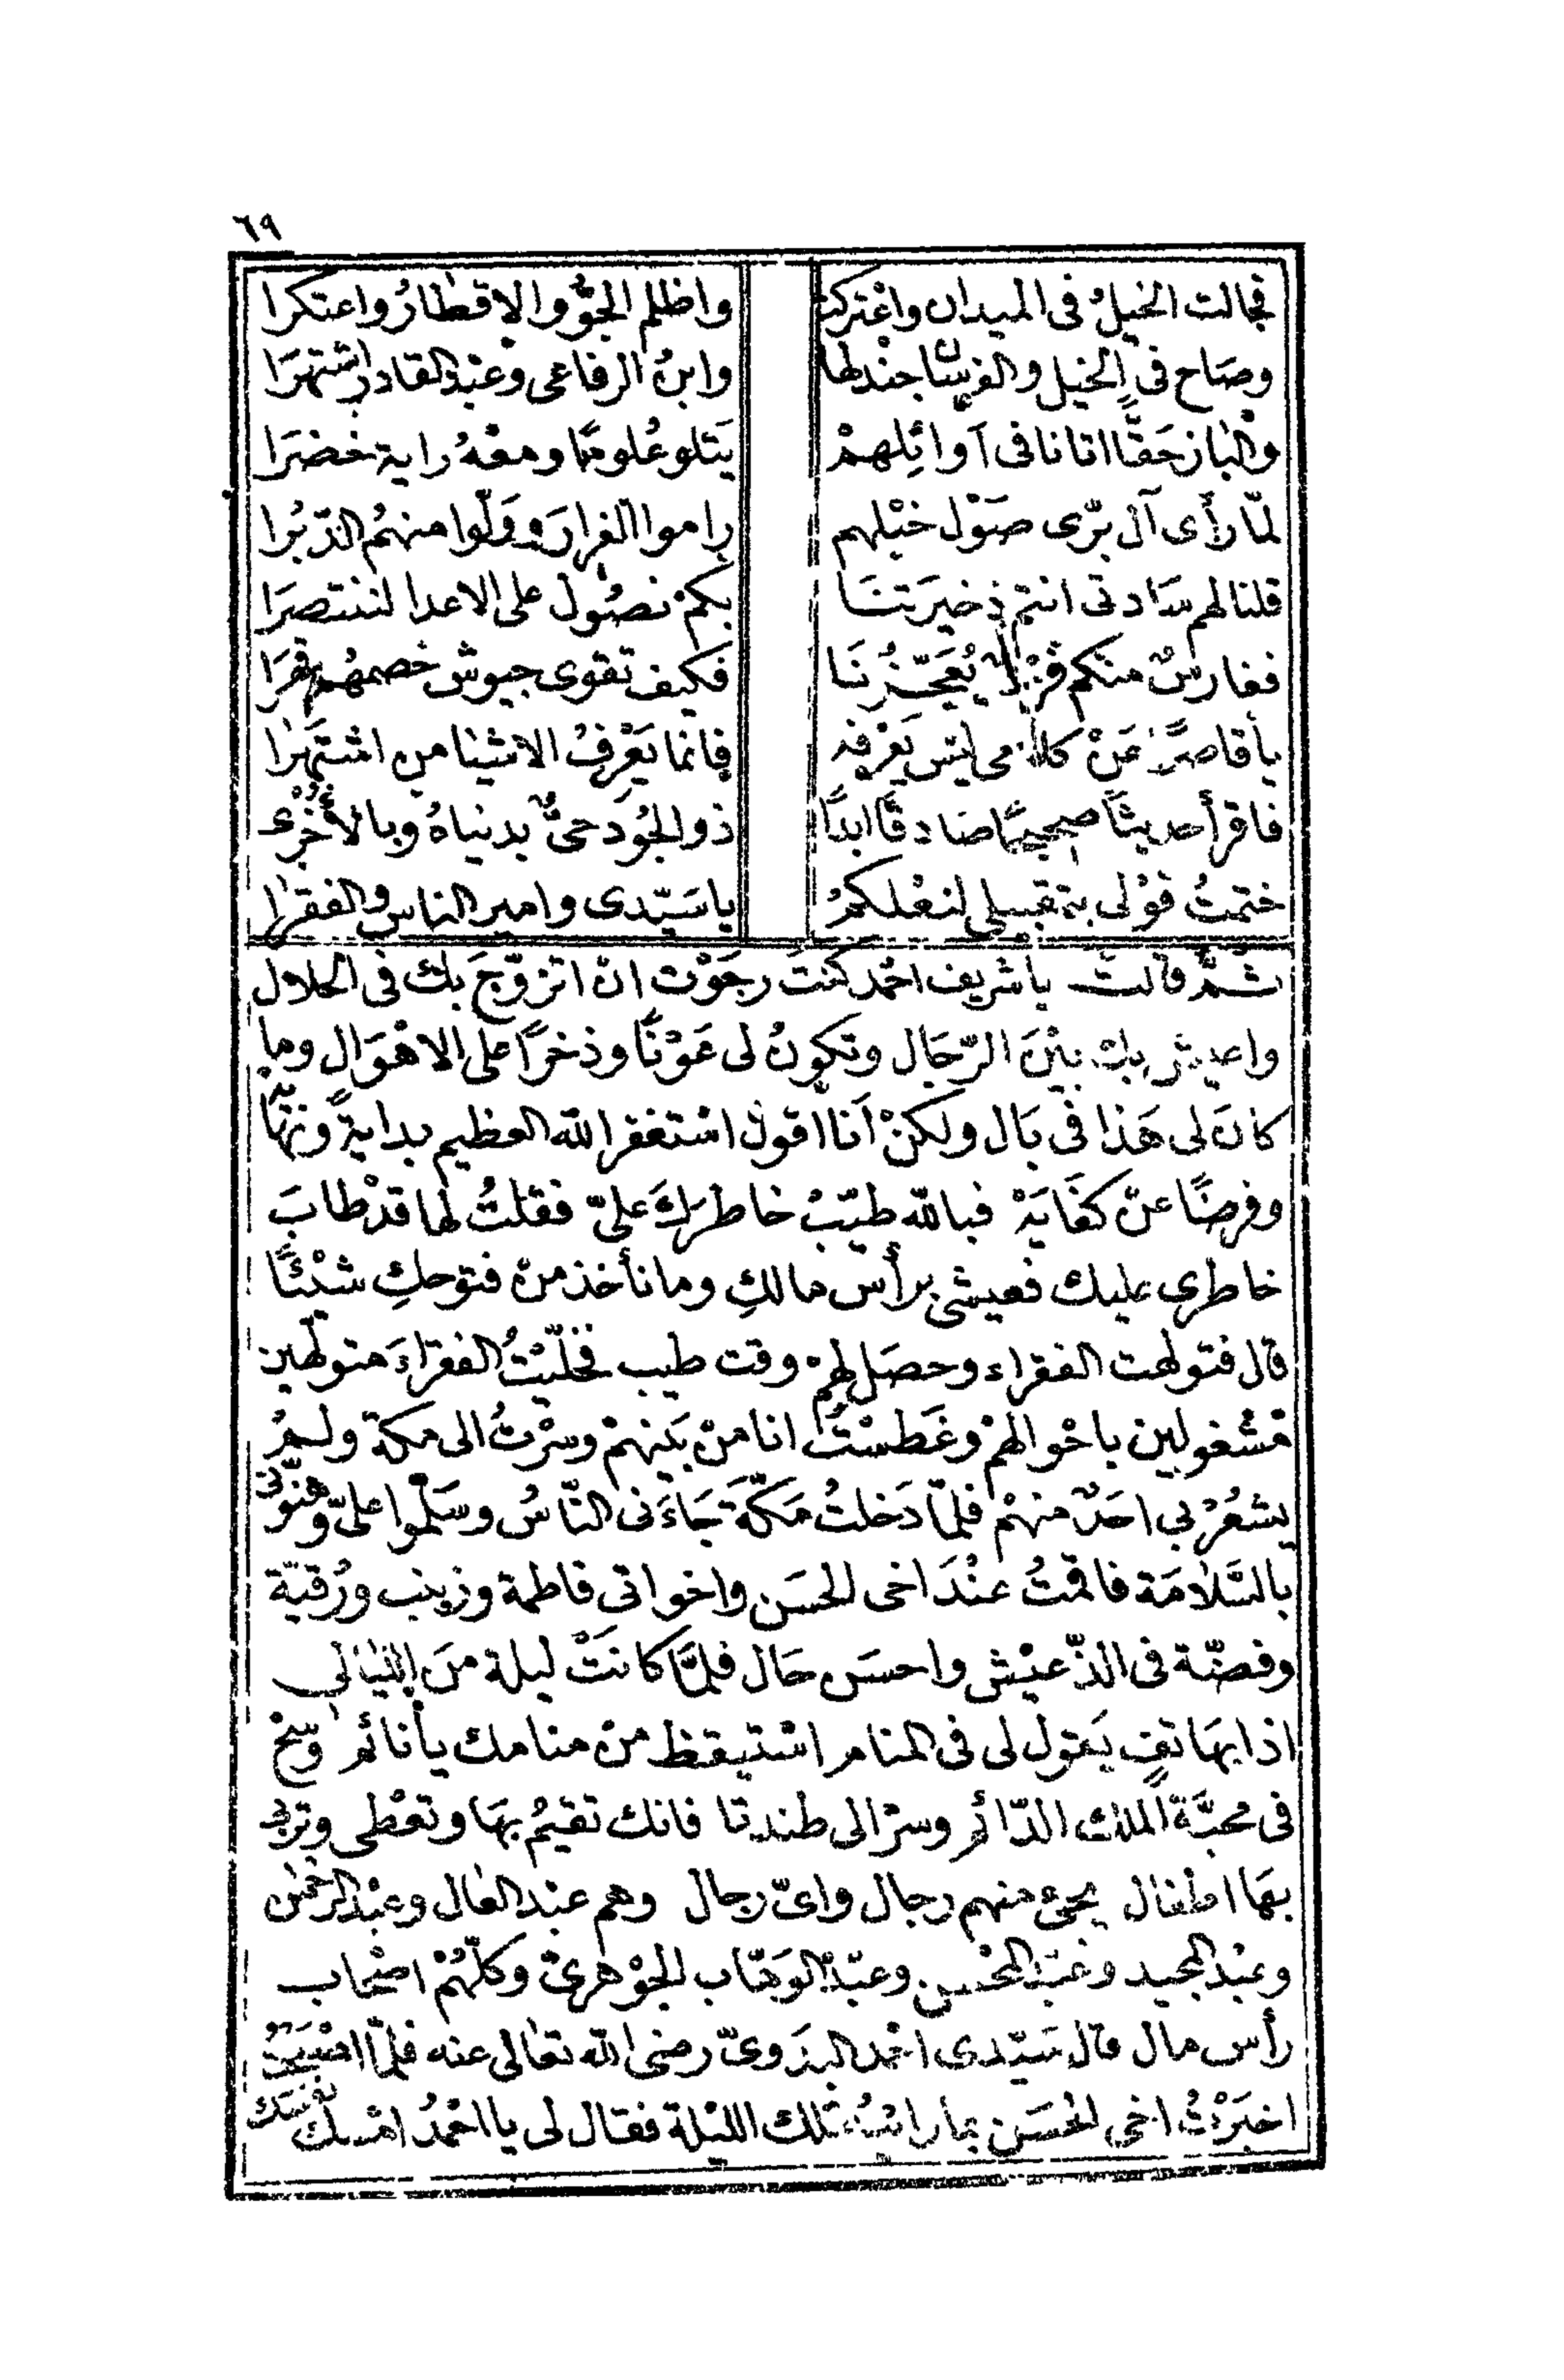 ٦٩
فجالت الخيلُ فى الميدان واعْتركت واظلم الجوُّ والاقطارُ واعتكرا
وصَاح فى الخيل والفرسَان جنْدلها وابنُ الرفاعى وعبْد القادر اشتهرَا
والباز حَقًّا اتانا فى آوائِلهمْ يَتلو عُلومًا ومعْهُ راية خضرَا
لمّا رأى آل برّى صَوْل خيْلهم راموا الفرارَ وولّوا منهمُ الدّبُرا
قلنا لهم سَادتى انتم ذخيرَتنَا بكمْ نصُول على الاعدا لننتصرَا
ففارسٌ منكم يُعَجّزُنَا فكيف تقوى جيوش خصمهُم
يا قاصرًا عَنْ ليس يَعْرفه فانما يَعْرفُ الاشيا من اشتَهرا
فاقرأ حديثًا صحيحًا صَادقًا ابدًا ذو الجُود حىٌّ بدنياهُ وبالأخْرَى
ختمتُ قوْلى بتقبيلى لنعْلكمُ يا سَيّدى وامير الناس والفقرا
ثمّ قالت يا شريف احْمد كنتَ رجَوْت انّ اتزوّجَ بك فى الحلال
واعيش بك بيْنَ الرّجَال وتكونُ لى عَوْنًا وذخرًا على الاهْوَال وما
كانَ لى هَذا فى بَال ولكنْ اَنا اقول اسْتغفر الله العظيم بدايةً ونهَايَةً
وفرضًا عنّ كفَايَةْ فبالله طيّبْ خاطركَ علىّ فقلتُ لها قدْ طابَ
خاطرى عليك فعيشى برأس مالكِ وما نأخذ منْ فتوحكِ شيْئًا
قال فتولهت الفقراء وحصَل لهمْ وقت طيب فخلّيْتُ الفقرَاءَ متولهين
مَشْغولين باحْوالهمْ وغَطسْتُ انا منْ بَينهمْ وسرْتُ الى مكة ولمْ
يشعُرْ بى احَدٌ منهمْ فلمّا دَخلتُ مَكّة جَاءَنى النّاسُ وسَلّموا علىّ وهنّونى
بالسَّلامَة فاقمْتُ عنْدَ اخى الحسَن واخواتى فاطمة وزينب ورُقيّة
وفضّة فى الذّ عيْش واحسَن حَال فلمَّا كانَتْ ليلة منَ الليَالى
اذا بهَاتفٍ يَقول لى فى المنام اسْتيقظ منْ منامك يا نائم
فى محبَّة الملك الدّائم وسرْ الى طندتا فانك تقيمُ بهَا وتعْطى وتربى
بهَا اطفال يجئ منهم رجال واىّ رجال وهم عبْد العَال وعبْد الرحمٰن
وعبْد المجيد وعبْد المحْسن وعبْد الوَهّاب الجوْهرىّ وكلّهُمْ اصْحاب
رأس مال قال سَيّدى احْمد البدَوىّ رضى الله تعَالى عنه فلمّا اصْبَحْتُ
اخبَرْتُ اخى الحسَن بما رايْتُ تلك الليْلة فقال لى يا احْمدُ امْسك نفسَك